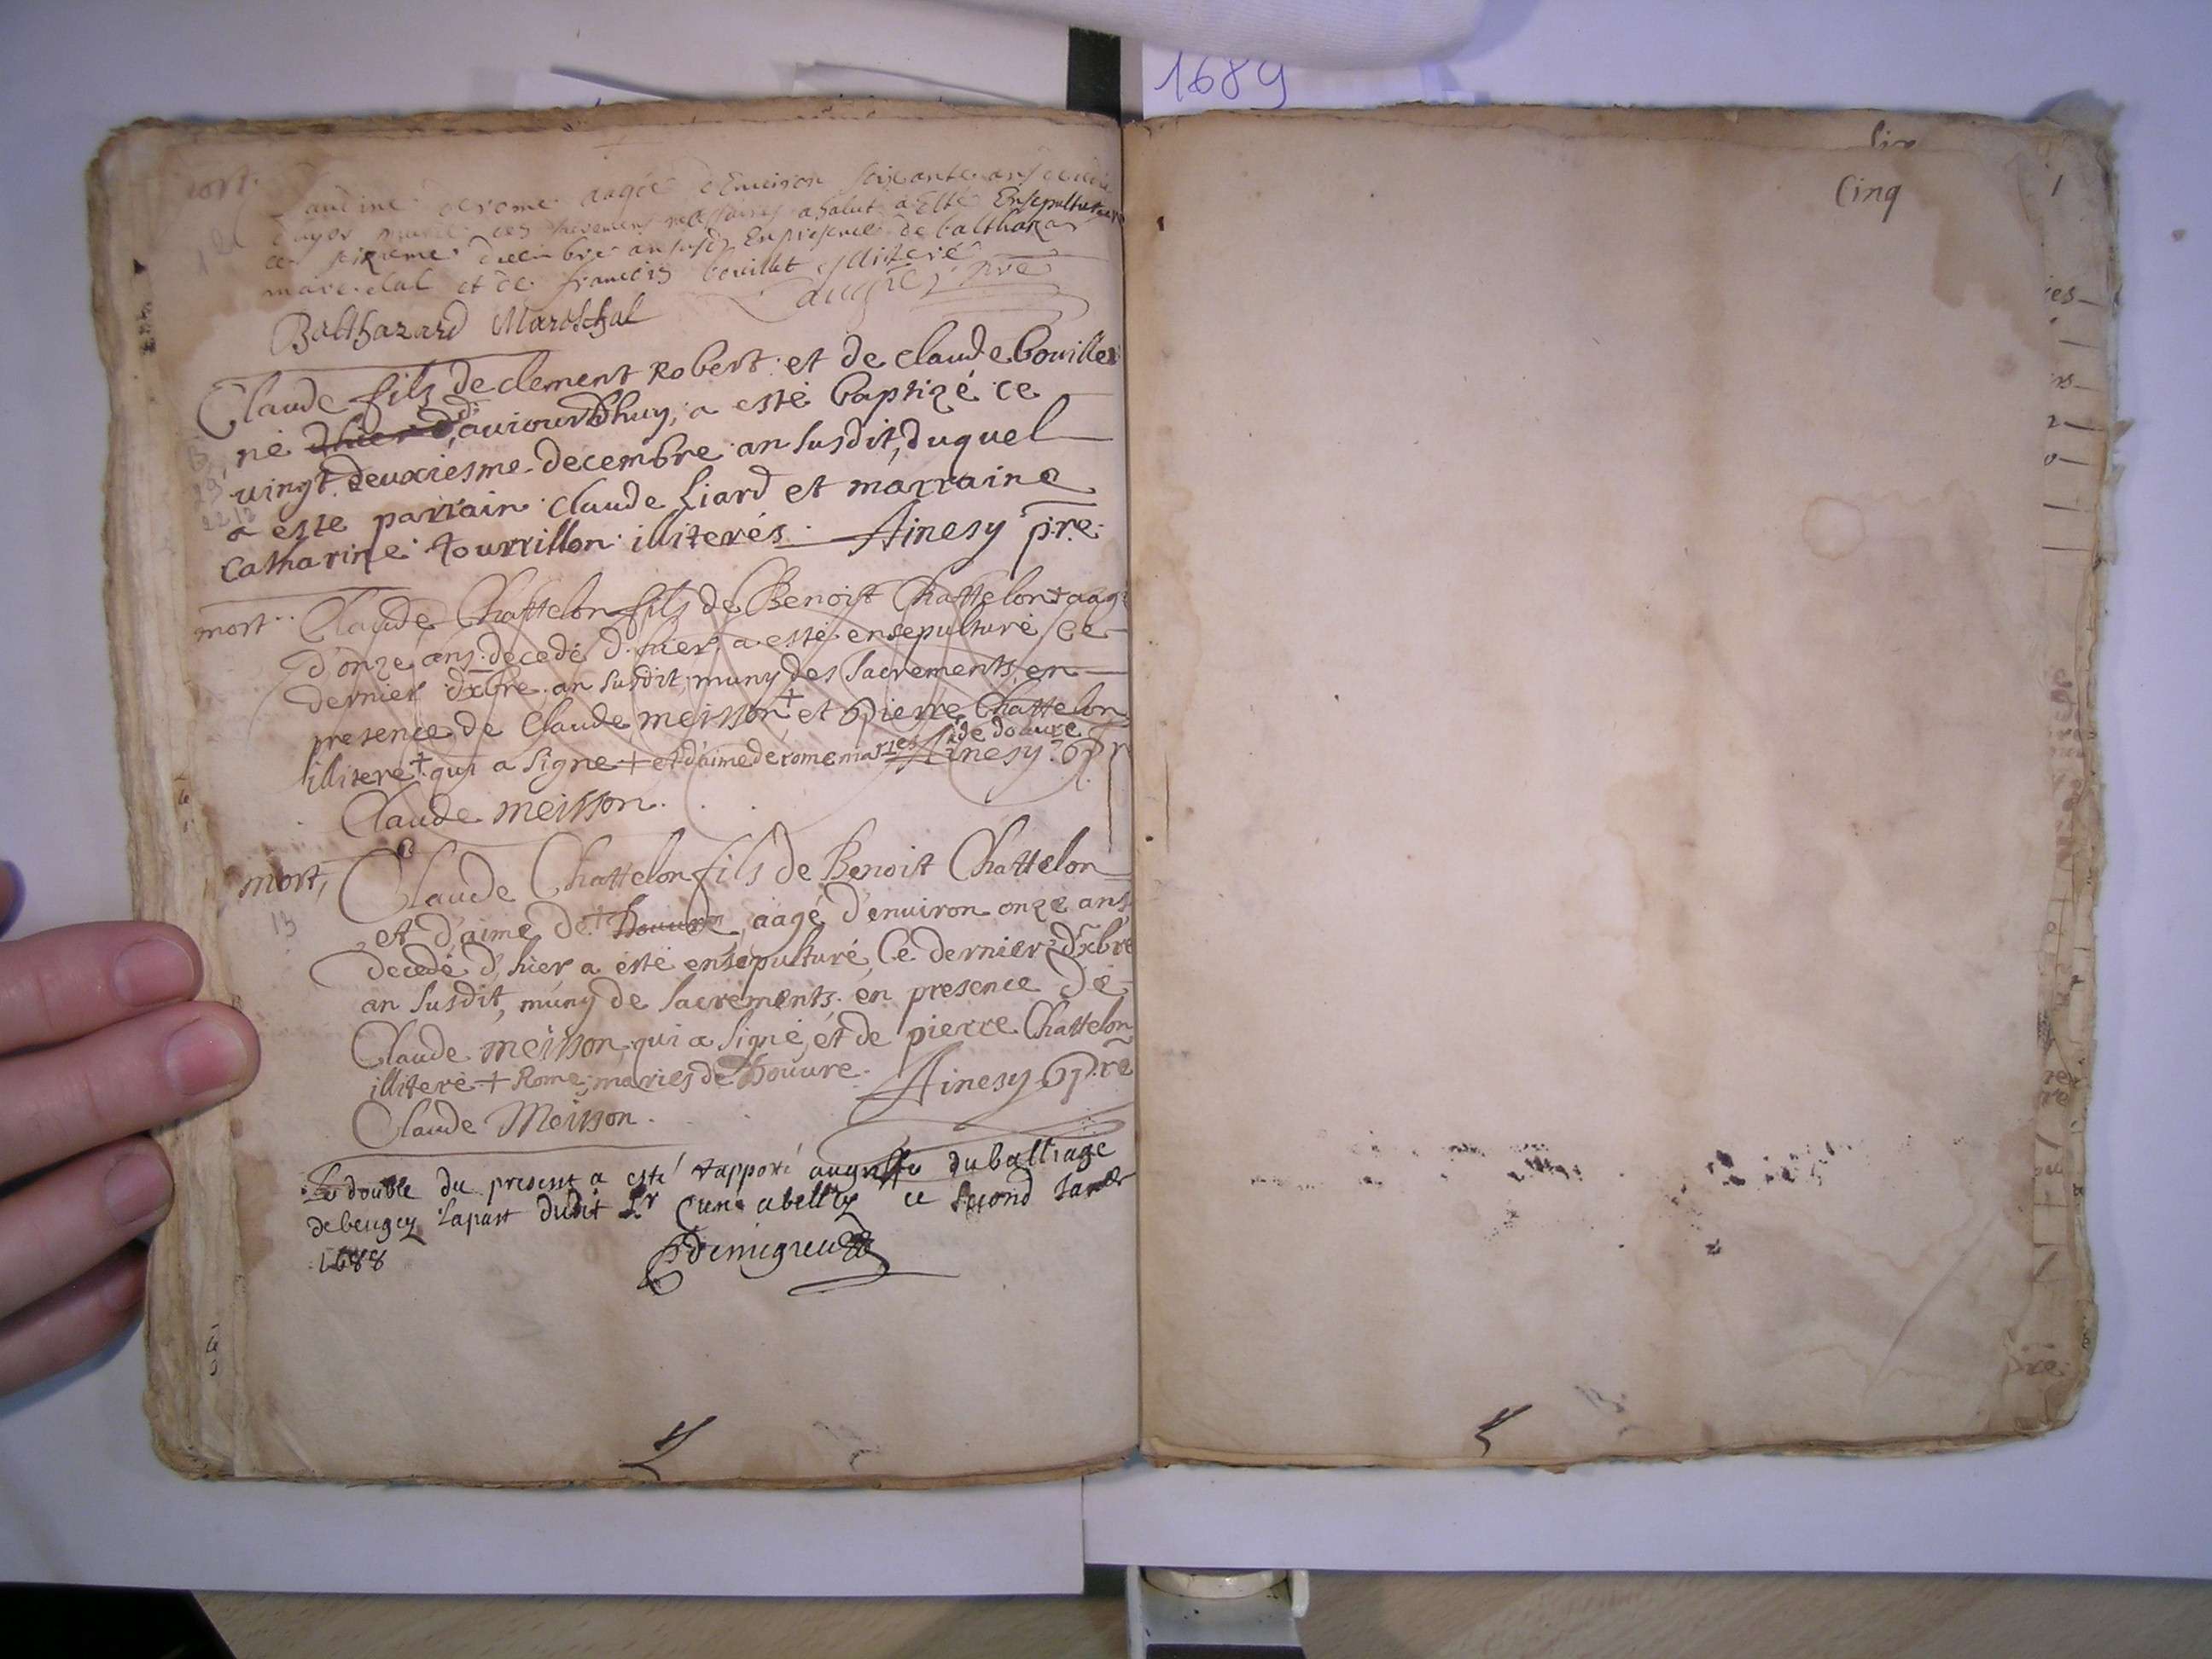 1689
mort.
audine derome aagée d'Enuiron soixante ans decedée
d'hyer munie des sacremens necessaires a salut a Esté Ensepulturée
ce seizieme decembre an susd. En presence de balthazar
mareschal et de francois bouillet illiteré
pre
Balthazard Mareschal
Claude fils de clement Robert et de claude bouillet
né d'hier d'auiourdhuy, a esté baptizé ce
vingt deuxiesme decembre an susdit, duquel
a este parrain claude Liard et marraine
Catharine tourrillon illiterés. Ainesy pre.
mort. Claude Chattelon fils de Benoist Chattelon + aagé
d'onze ans decedé d'hier a esté ensepulturé ce
dernier Xbre an susdit, muny des sacrements, en
presence de Claude meisson + et pierre Chattelon
illiteré + qui a signe + et d'aime derome mariés de douure Ainesy Pr
Claude meisson.
mort, Claude Chattelon fils de Benoit Chattelon
et d'aime de + Douure aagé d'enuiron onze ans
decedé d'hier a esté ensepulturé, Ce dernier Xbre
an susdit, muny de sacrements, en presence de
Claude meisson, qui a signé, et de pierre Chattelon
illiteré + Rome mariés de Douure. Ainesy Pre
Claude Meisson.
13
Le double du present a esté rapporté au greffe du balliage
de beugey la part dudit Sr Curé ce second Janer
1688
Demigneux
six
Cinq